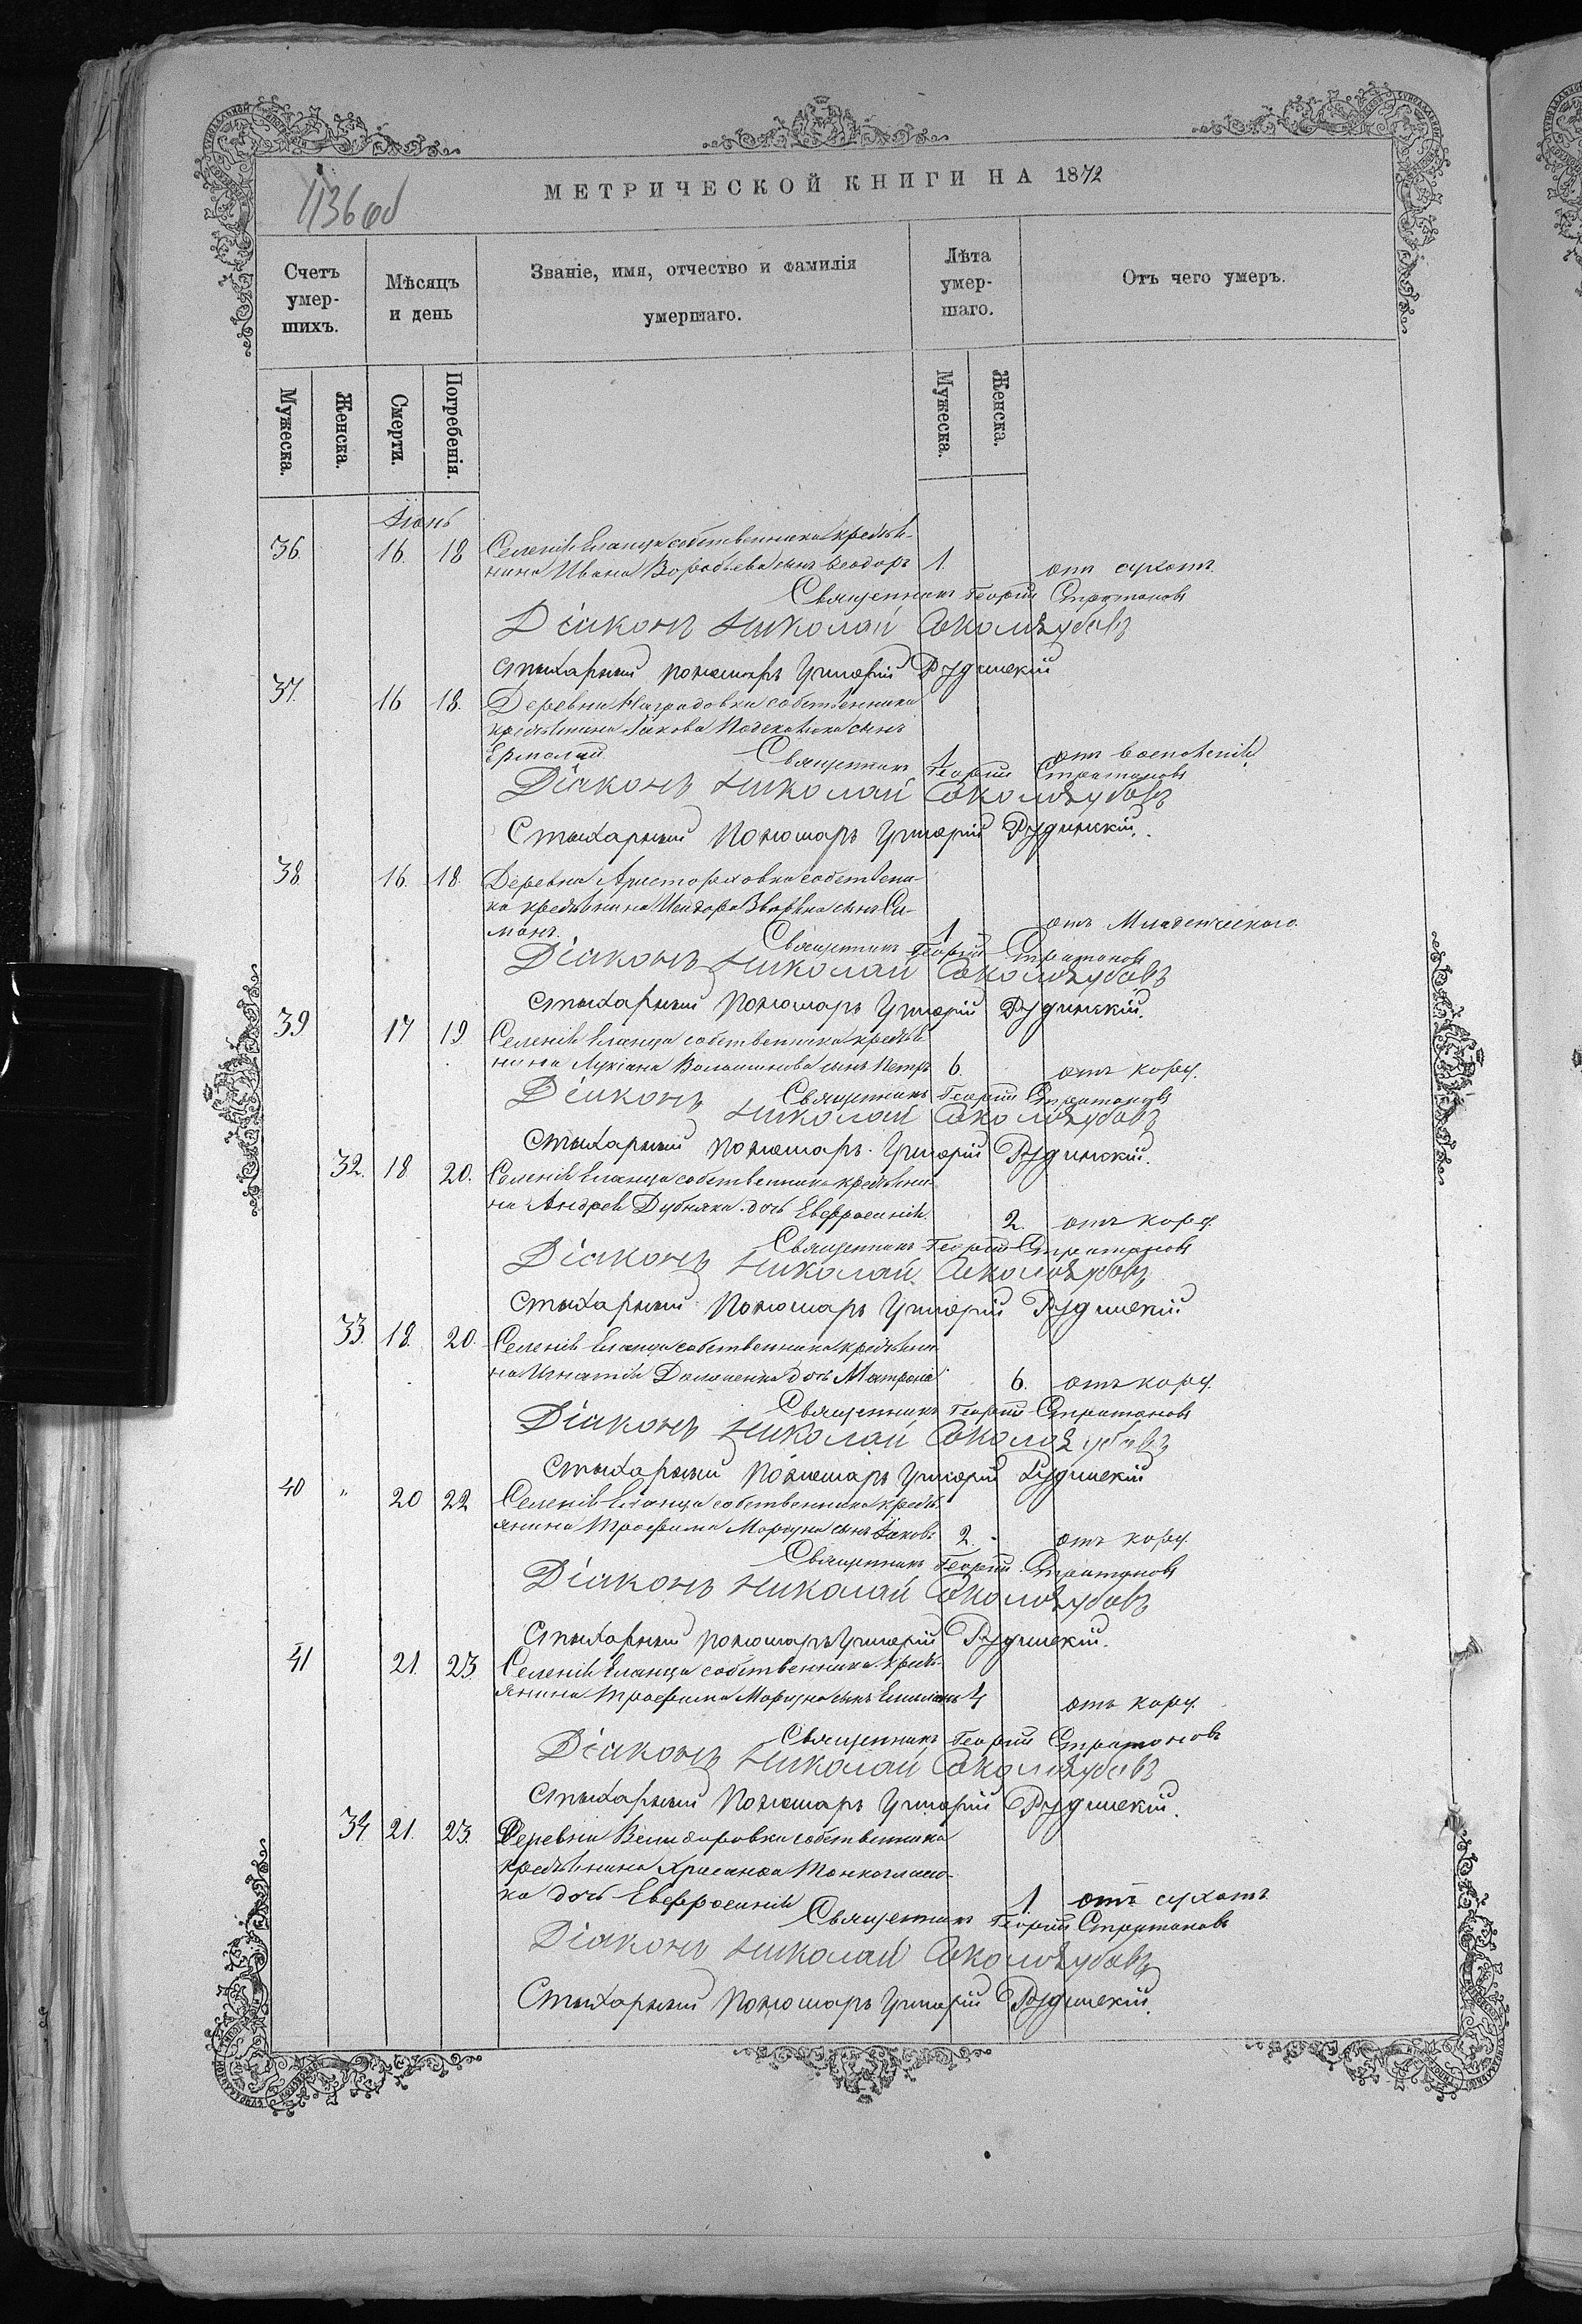 1136 об
МЕТРИЧЕСКОЙ КНИГИ НА 1872
Счетъ умер-шихъ.
Мѣсяцъ и день
Званіе, имя, отчество и фамилія умершаго.
Лѣта умер-шаго.
Отъ чего умеръ.
Мужеска.
Женска.
Смерти.
Погребенія.
Мужеска.
Женска.
Іюнь
36. 16. 18 Селенія Еланца собственника крестья-
нина Ивана Воробьева сынъ Ѳеодоръ 1. отъ сухотъ.
Священникъ Георгій Стратоновъ
Діаконъ Николай
Стихарный пономарь Григорій Рудинскій
37. 16 18. Деревни Наградовки собственника
крестьянина Іакова сынъ
Ермолай. 1 отъ воспаленія
Священникъ Георгій Стратоновъ
Діаконъ Николай
Стихарный Пономарь Григорій Рудинскій.
38. 16. 18. Деревни собствени-
ка крестьянина Исидора сынъ Си-
монъ. 1 отъ Младенческаго.
Священникъ Георгій Стратоновъ
Діаконъ Николай
Стихарный Пономарь Григорій Рудинскій.
39 17 19 Селенія Еланца собственника крестья-
нина Лукіана сынъ Петръ 6. отъ кору.
Священникъ Георгій Стратоновъ
Діаконъ Николай
Стихарный Пономарь Григорій Рудинскій.
32. 18 20. Селенія Еланца собственника крестьяни-
на Андрея Дубняка дочь Евфросинія 2. отъ кору.
Священникъ Георгій Стратоновъ
Діаконъ Николай
Стихарный Пономарь Григорій Рудинскій
33. 18. 20. Селенія Еланца собственника крестьяни-
на Игнатія дочь Матрона 6. отъ кору.
Священникъ Георгій Стратоновъ
Діаконъ Николай
Стихарный Пономарь Григорій Рудинскій
40 " 20 22 Селенія Еланца собственника кресть-
янина Трофима Моргуна сынъ Іаковъ 2. отъ кору.
Священникъ Георгій Стратоновъ
Діаконъ Николай
Стихарный пономарь Григорій Рудинскій.
41 21. 23 Селенія Еланца собственника кресть-
янина Трофима Моргуна сынъ Емиліанъ 4 отъ кору.
Священникъ Георгій Стратоновъ
Діаконъ Николай
Стихарный Пономарь Григорій Рудинскій.
34. 21. 23. Деревни собственника
крестьянина Хрисанфа
ка дочь Евфросинія 1. отъ сухотъ
Священникъ Георгій Стратоновъ
Діаконъ Николай
Стихарный Пономарь Григорій Рудинскій.